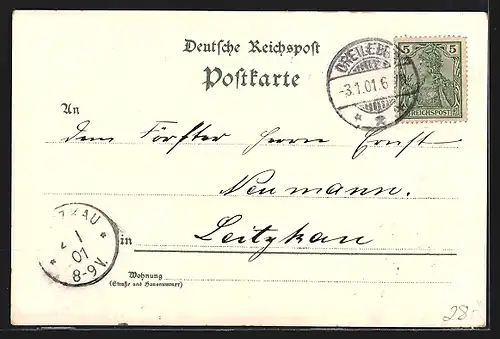 Deutsche Reichspost
Postkarte
5 5
REICHSPOST
-3.1.01.6
An
dem Förster Herrn Ernst
Neumann.
in Leitzkau
ZKAU
1
01
8-9V.
Wohnung
(Straße und Hausnummer)
28.-